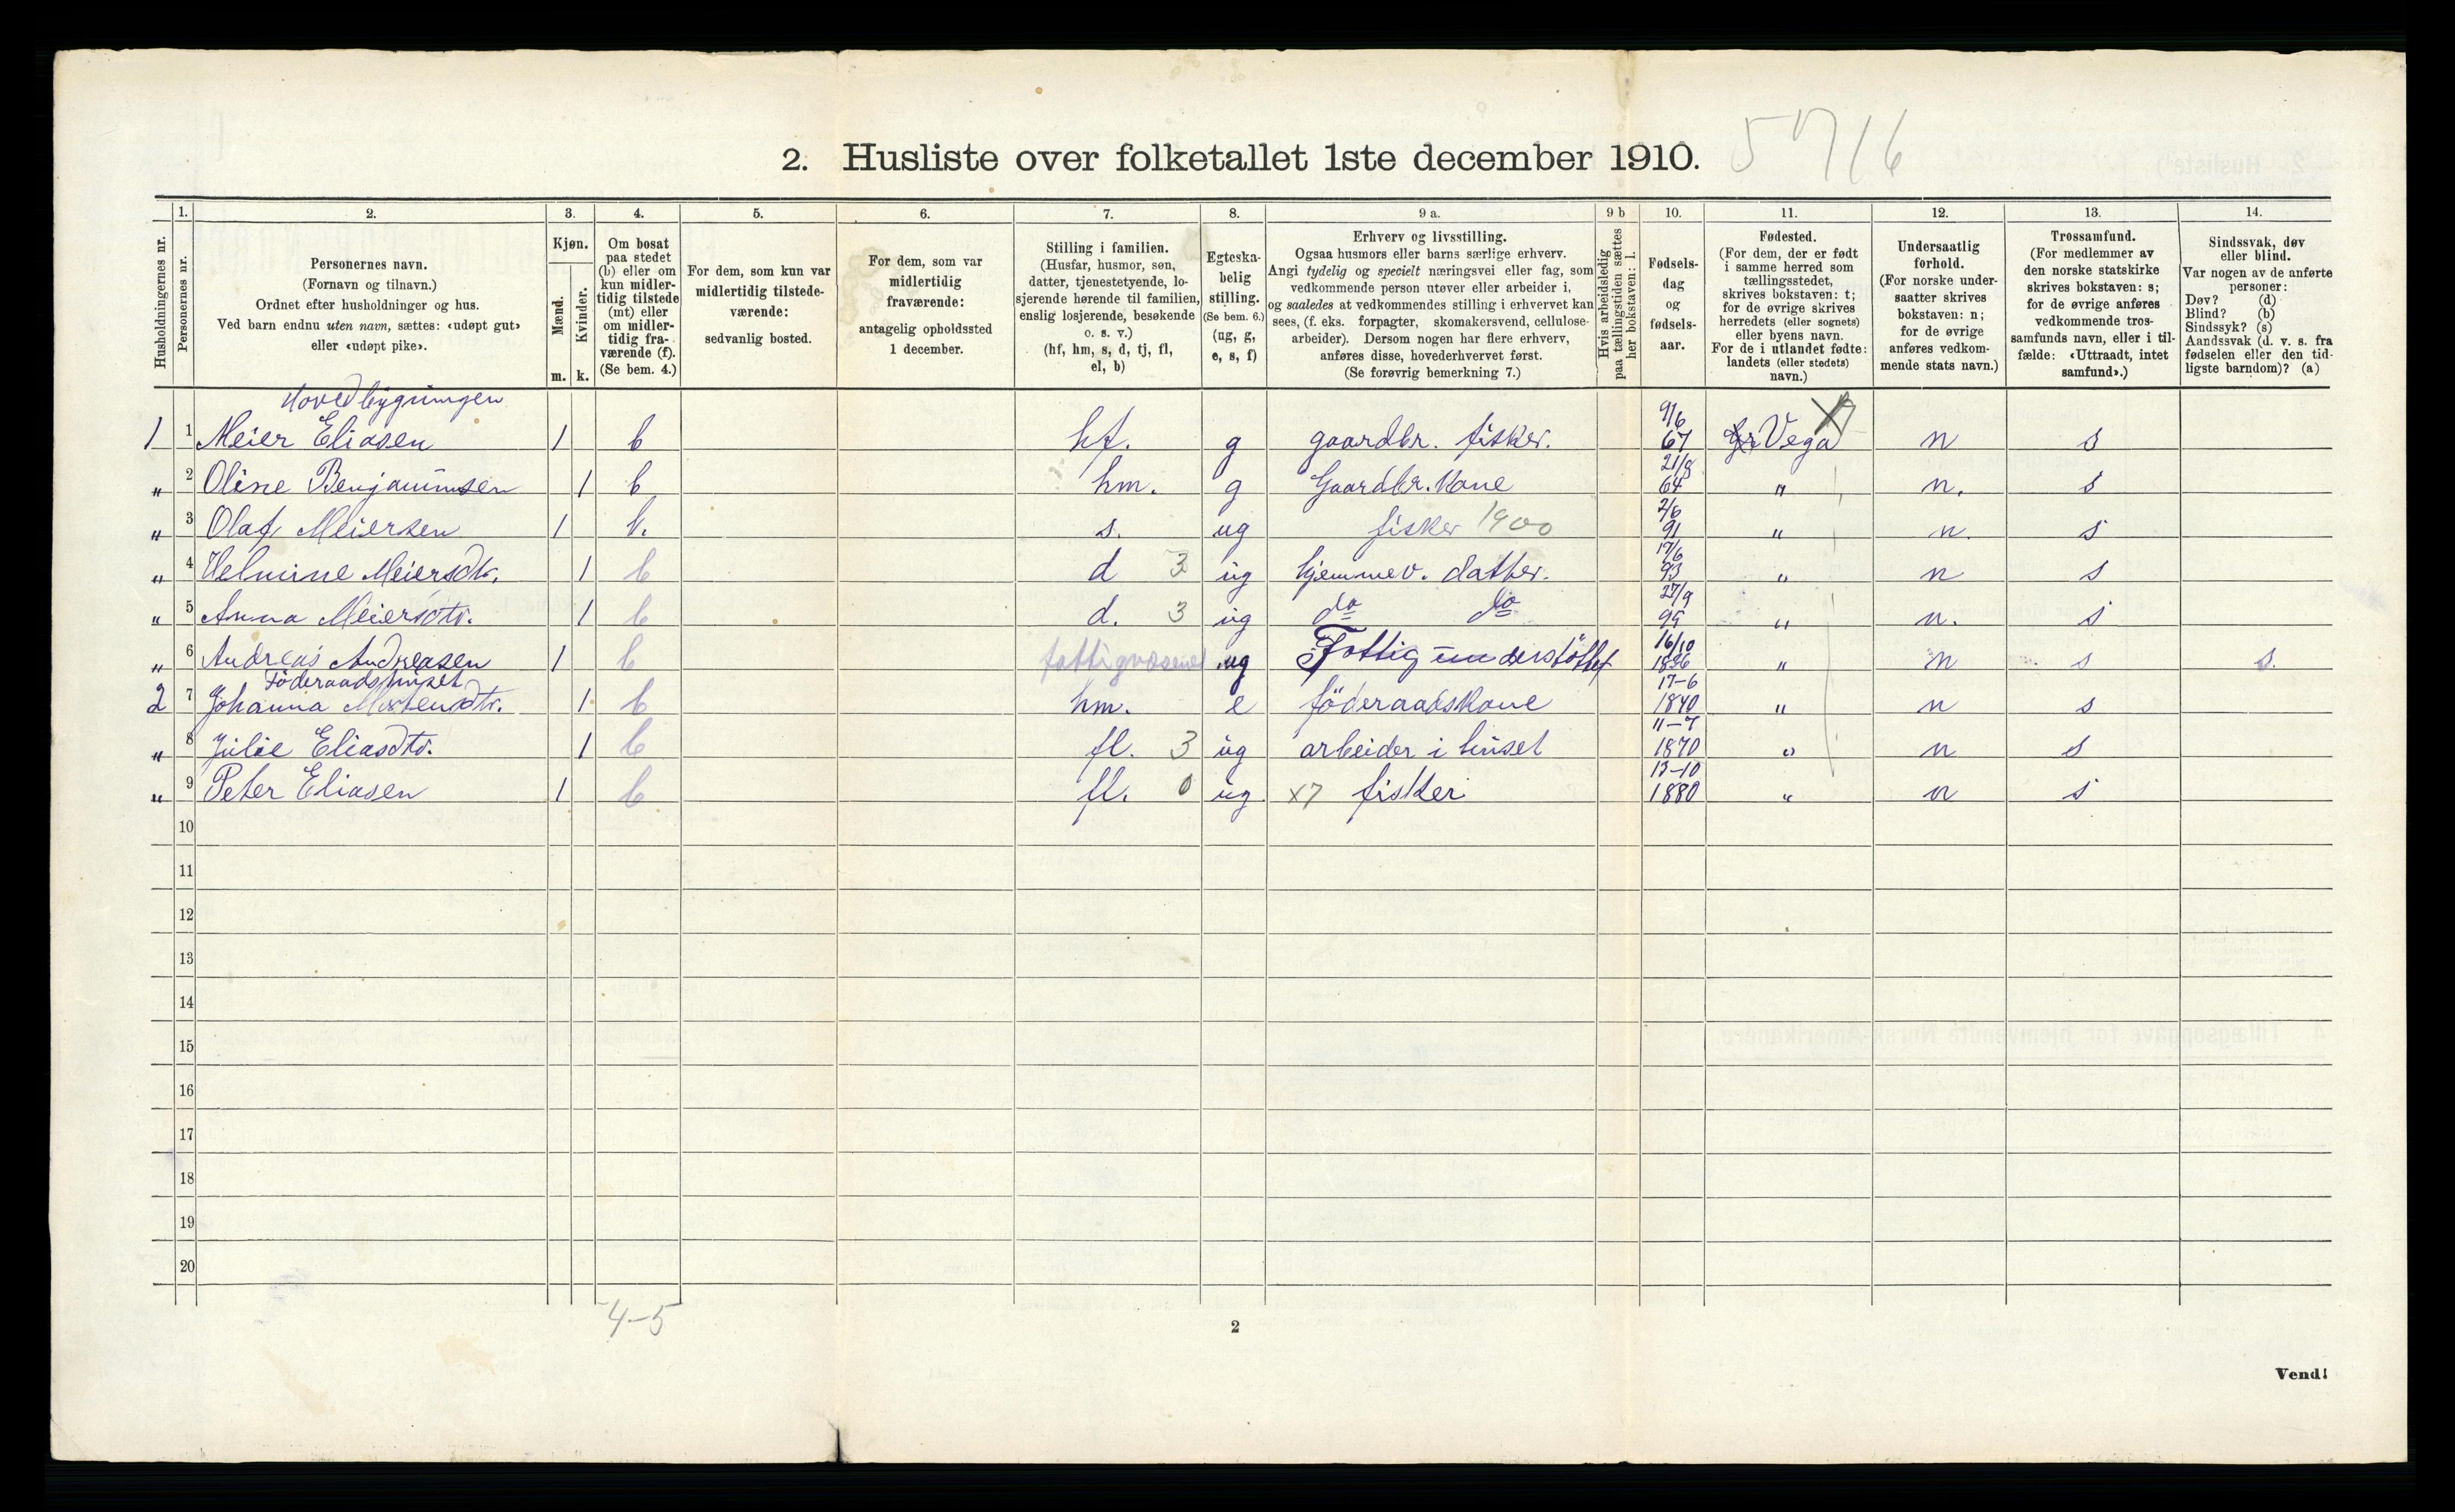 2. Husliste over folketallet 1ste december 1910. 5716
1. 2. 3. 4. 5. 6. 7. 8. 9 a. 9 b 10. 11. 12. 13. 14.
Husholdningernes nr.
Personernes nr.
Personernes navn.
(Fornavn og tilnavn.)
Ordnet efter husholdninger og hus.
Ved barn endnu uten navn, sættes: «udøpt gut»
eller «udøpt pike».
Kjøn.
Mænd.
Kvinder.
m. k.
Om bosat
paa stedet
(b) eller om
kun midler-
tidig tilstede
(mt) eller
om midler-
tidig fra-
værende (f).
(Se bem. 4.)
For dem, som kun var
midlertidig tilstede-
værende:
sedvanlig bosted.
For dem, som var
midlertidig
fraværende:
antagelig opholdssted
1 december.
Stilling i familien.
(Husfar, husmor, søn,
datter, tjenestetyende, lo-
sjerende hørende til familien,
enslig losjerende, besøkende
o. s. v.)
(hf, hm, s, d, tj, fl,
el, b)
Egteska-
belig
stilling.
(Se bem. 6.)
(ug, g,
e, s, f)
Erhverv og livsstilling.
Ogsaa husmors eller barns særlige erhverv.
Angi tydelig og specielt næringsvei eller fag, som
vedkommende person utøver eller arbeider i,
og saaledes at vedkommendes stilling i erhvervet kan
sees, (f. eks. forpagter, skomakersvend, cellulose-
arbeider). Dersom nogen har flere erhverv,
anføres disse, hovederhvervet først.
(Se forøvrig bemerkning 7.)
Hvis arbeidsledig
paa tællingstiden sættes
her bokstaven: l.
Fødsels-
dag
og
fødsels-
aar.
Fødested.
(For dem, der er født
i samme herred som
tællingsstedet,
skrives bokstaven: t;
for de øvrige skrives
herredets (eller sognets)
eller byens navn.
For de i utlandet fødte:
landets (eller stedets)
navn.)
Undersaatlig
forhold.
(For norske under-
saatter skrives
bokstaven: n;
for de øvrige
anføres vedkom-
mende stats navn.)
Trossamfund.
(For medlemmer av
den norske statskirke
skrives bokstaven: s;
for de øvrige anføres
vedkommende tros-
samfunds navn, eller i til-
fælde: «Uttraadt, intet
samfund».)
Sindssvak, døv
eller blind.
Var nogen av de anførte
personer:
Døv? (d)
Blind? (b)
Sindssyk? (s)
Aandssvak (d. v. s. fra
fødselen eller den tid-
ligste barndom)? (a)
Hovedbygningen
1 1 Meier Eliasen 1 b hf. g gaardbr. fisker. 9/6 67 Vega n s
" 2 Oline Benjaminsen 1 b hm. g Gaardbr. Kone 21/8 64 " n. s
" 3 Olaf Meiersen 1 b. s. ug fisker 1900 2/6 91 " n. s
" 4 Helmine Meiersdtr. 1 b d 3 ug hjemmev. datter. 17/6 93 " n s
" 5 Anna Meiersdtr. 1 b d. 3 ug do do 27/9 95 " n. s
" 6 Andreas Andreasen 1 b fattigvæsenet ug Fattig understöttet 16/10 1836 " n s s.
Föderaadshuset
2 7 Johanna Mortensdtr. 1 b hm. e föderaadskone 17-6 1840 " n s
" 8 Julie Eliasdtr. 1 b fl. 3 ug arbeider i huset 11-7 1870 " n s
" 9 Peter Eliasen 1 b fl. 0 ug x7 fisker 13-10 1880 " n s
10
11
12
13
14
15
16
17
18
19
20
4-5
2
Vend!